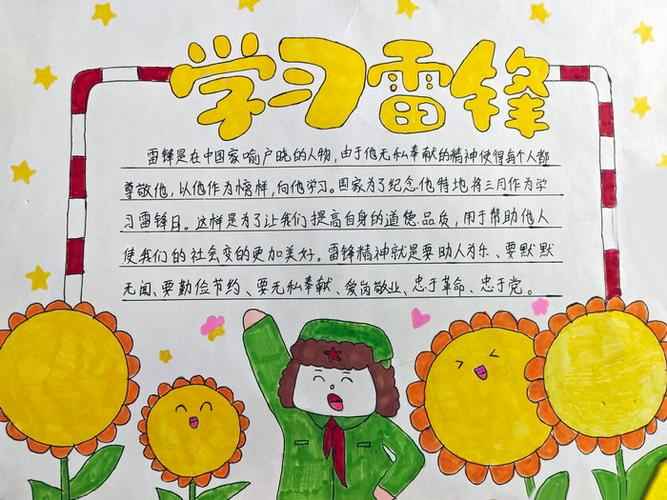 学习雷锋
雷锋是在中国家喻户晓的人物,由于他无私奉献的精神使得每个人都
尊敬他,以他作为榜样,向他学习。国家为了纪念他特地将三月作为学
习雷锋日。这样是为了让我们提高自身的道德品质,用于帮助他人
使我们的社会变的更加美好。雷锋精神就是要助人为乐、要默默
无闻、要勤俭节约、要无私奉献、爱岗敬业、忠于革命、忠于党。